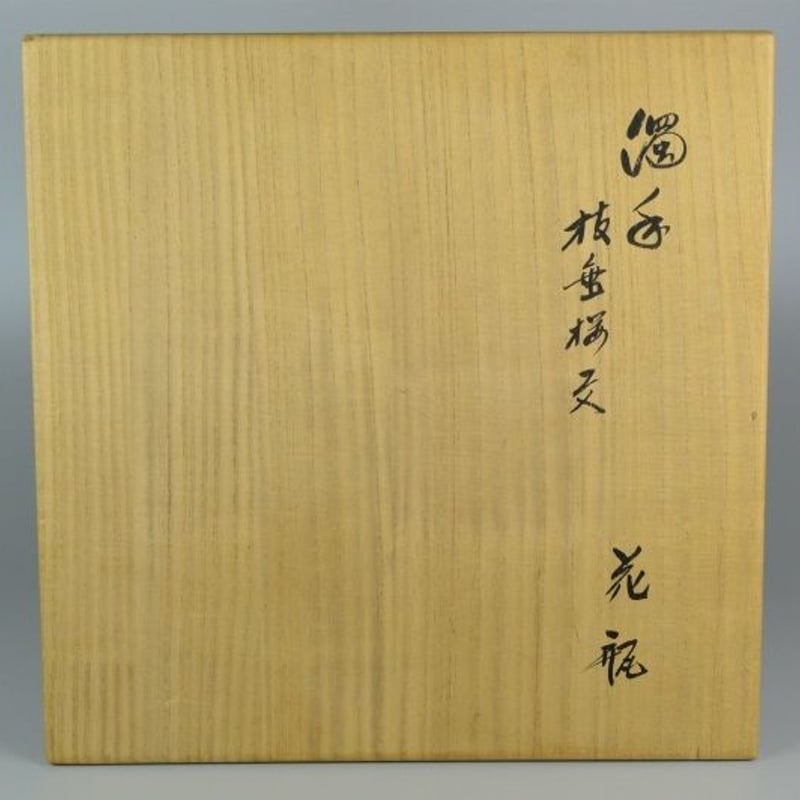 濁手
枝垂桜文
花瓶